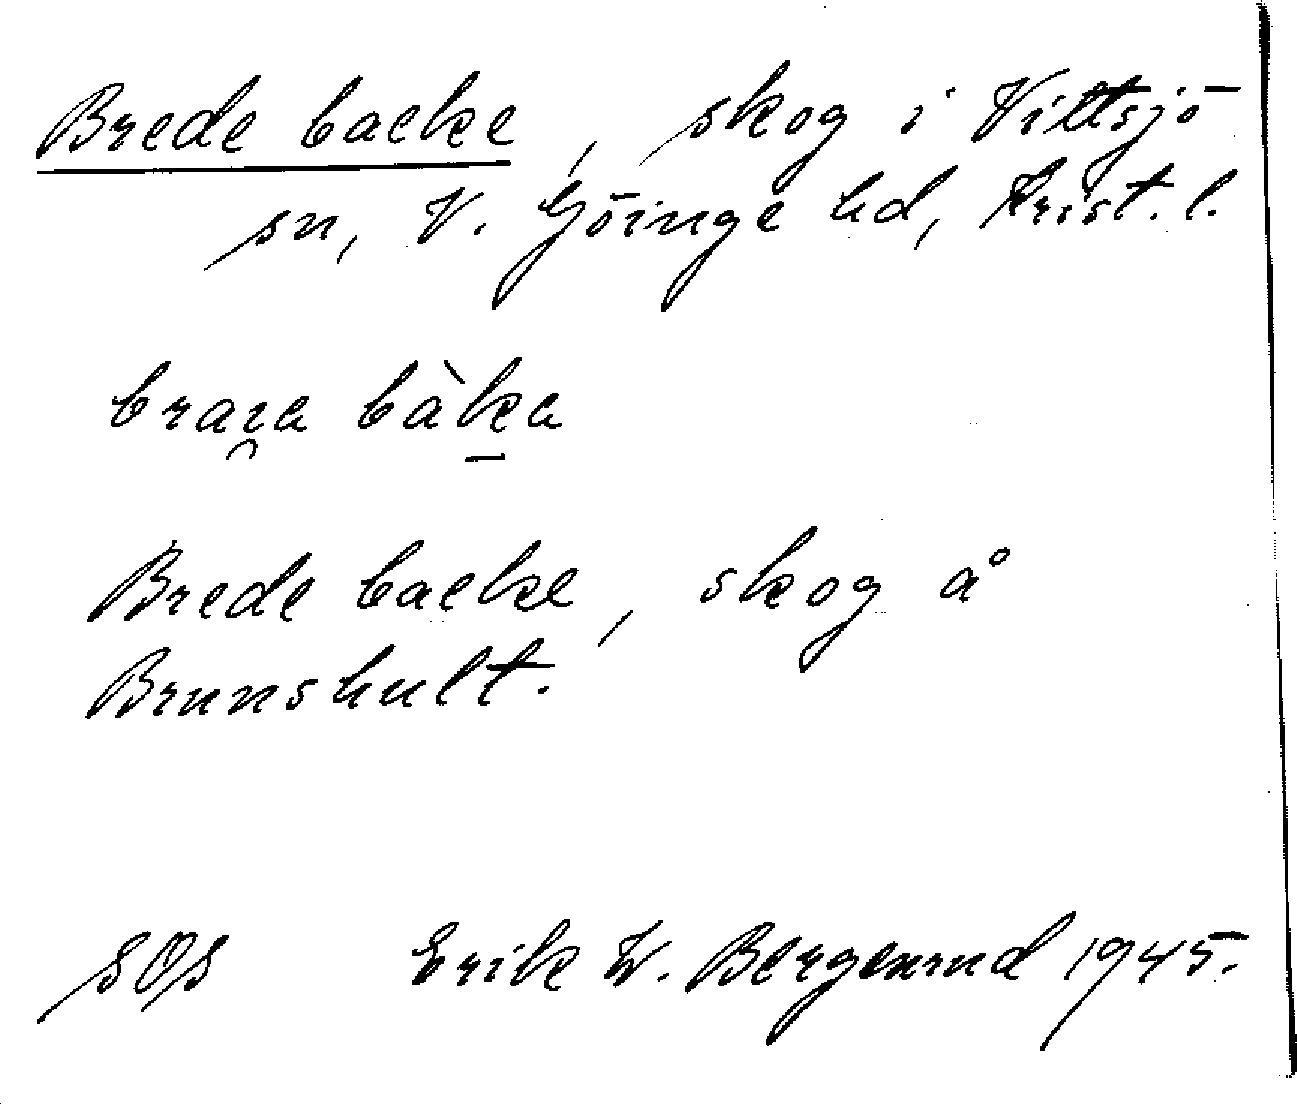 Brede backe, skog i Vittsjö
sn, V. Göinge hd, Krist. l.
bàka
Brede backe, skog å
Brunshult.
SOS Erik W. 1945.